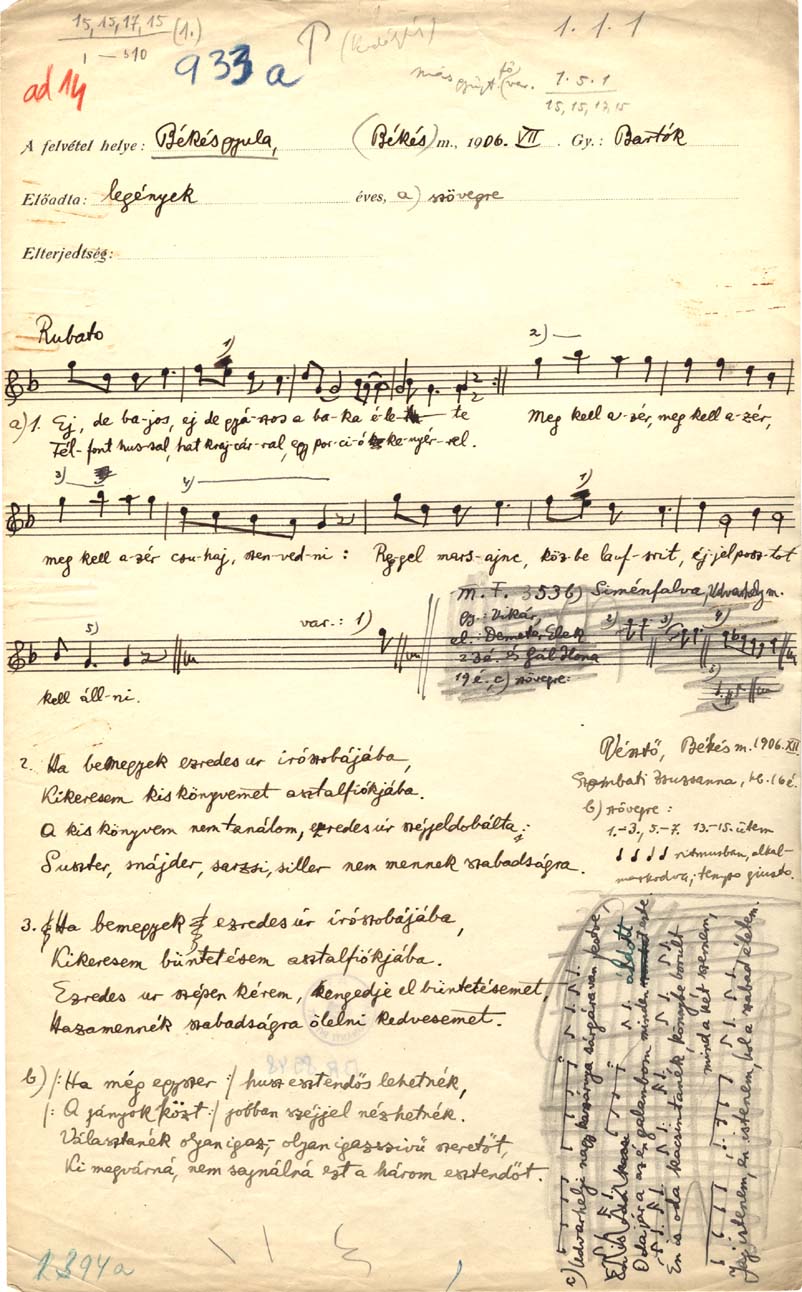 15, 15, 17, 15 (1.)
1 — 510
1. 1. 1
933 a
ad 14
más gyűjt. var. 1. 5. 1
15, 15, 17, 15
A felvétel helye: Békésgyula, (Békés) m., 1906. VII. Gy.: Bartók
Előadta: legények éves, a) szövegre
Elterjedtség:
Rubato
1) 2)
a) 1. Ej, de ba-jos, ej de gyá-szos a ba-ka é-le- te Meg kell a-zér, meg kell a-zér,
Fél-font hus-sal, hat kraj-cár-ral, egy por-ci-ó ke-nyér-rel.
3) 4) 1)
meg kell a-zér csu-haj, szen-ved-ni: Reg-gel mars-ajnc, köz-be lauf-srit, éj-jel posz-tot
5) var.: 1)
kell áll-ni.
M. F. 353b) Siménfalva, Udvarhely m.
gy.: Vikár,
el.: Demeter Elek
23 é. és Gál Ilona
19 é., c) szövegre:
2) 3) 4)
5)
2. Ha bemegyek ezredes ur irószobájába,
Kikeresem kis könyvemet asztalfiókjába.
A kis könyvem nem tanálom, ezredes úr széjjeldobálta;
Suszter, snájder, sarzsi, siller nem mennek szabadságra.
Vésztő, Békés m. 1906. XII.
Szombati Zsuzsanna, kb. 16 é.
b) szövegre:
1.-3., 5.-7. 13.-15. ütem
ritmusban, alkal-
mazkodva; tempo giusto.
3. Ha bemegyek ezredes úr irószobájába,
Kikeresem büntetésem asztalfiókjába.
Ezredes ur szépen kérem, engedje el büntetésemet,
Hazamennék szabadságra ölelni kedvesemet.
b) /: Ha még egyszer :/ husz esztendős lehetnék,
/: A jányok közt :/ jobban széjjel nézhetnék.
Választanék olyan igaz, olyan igazszivü szeretőt,
Ki megvárná, nem sajnálná ezt a három esztendőt.
c) Udvarhelyi nagy kaszárnya sárgára van festve,
Odajár a az én galambom minden áldott este.
Én is oda kacsintanék, könnybe borult
mind a két szemem,
Jaj istenem, én istenem, hol a szabad életem.
1394a